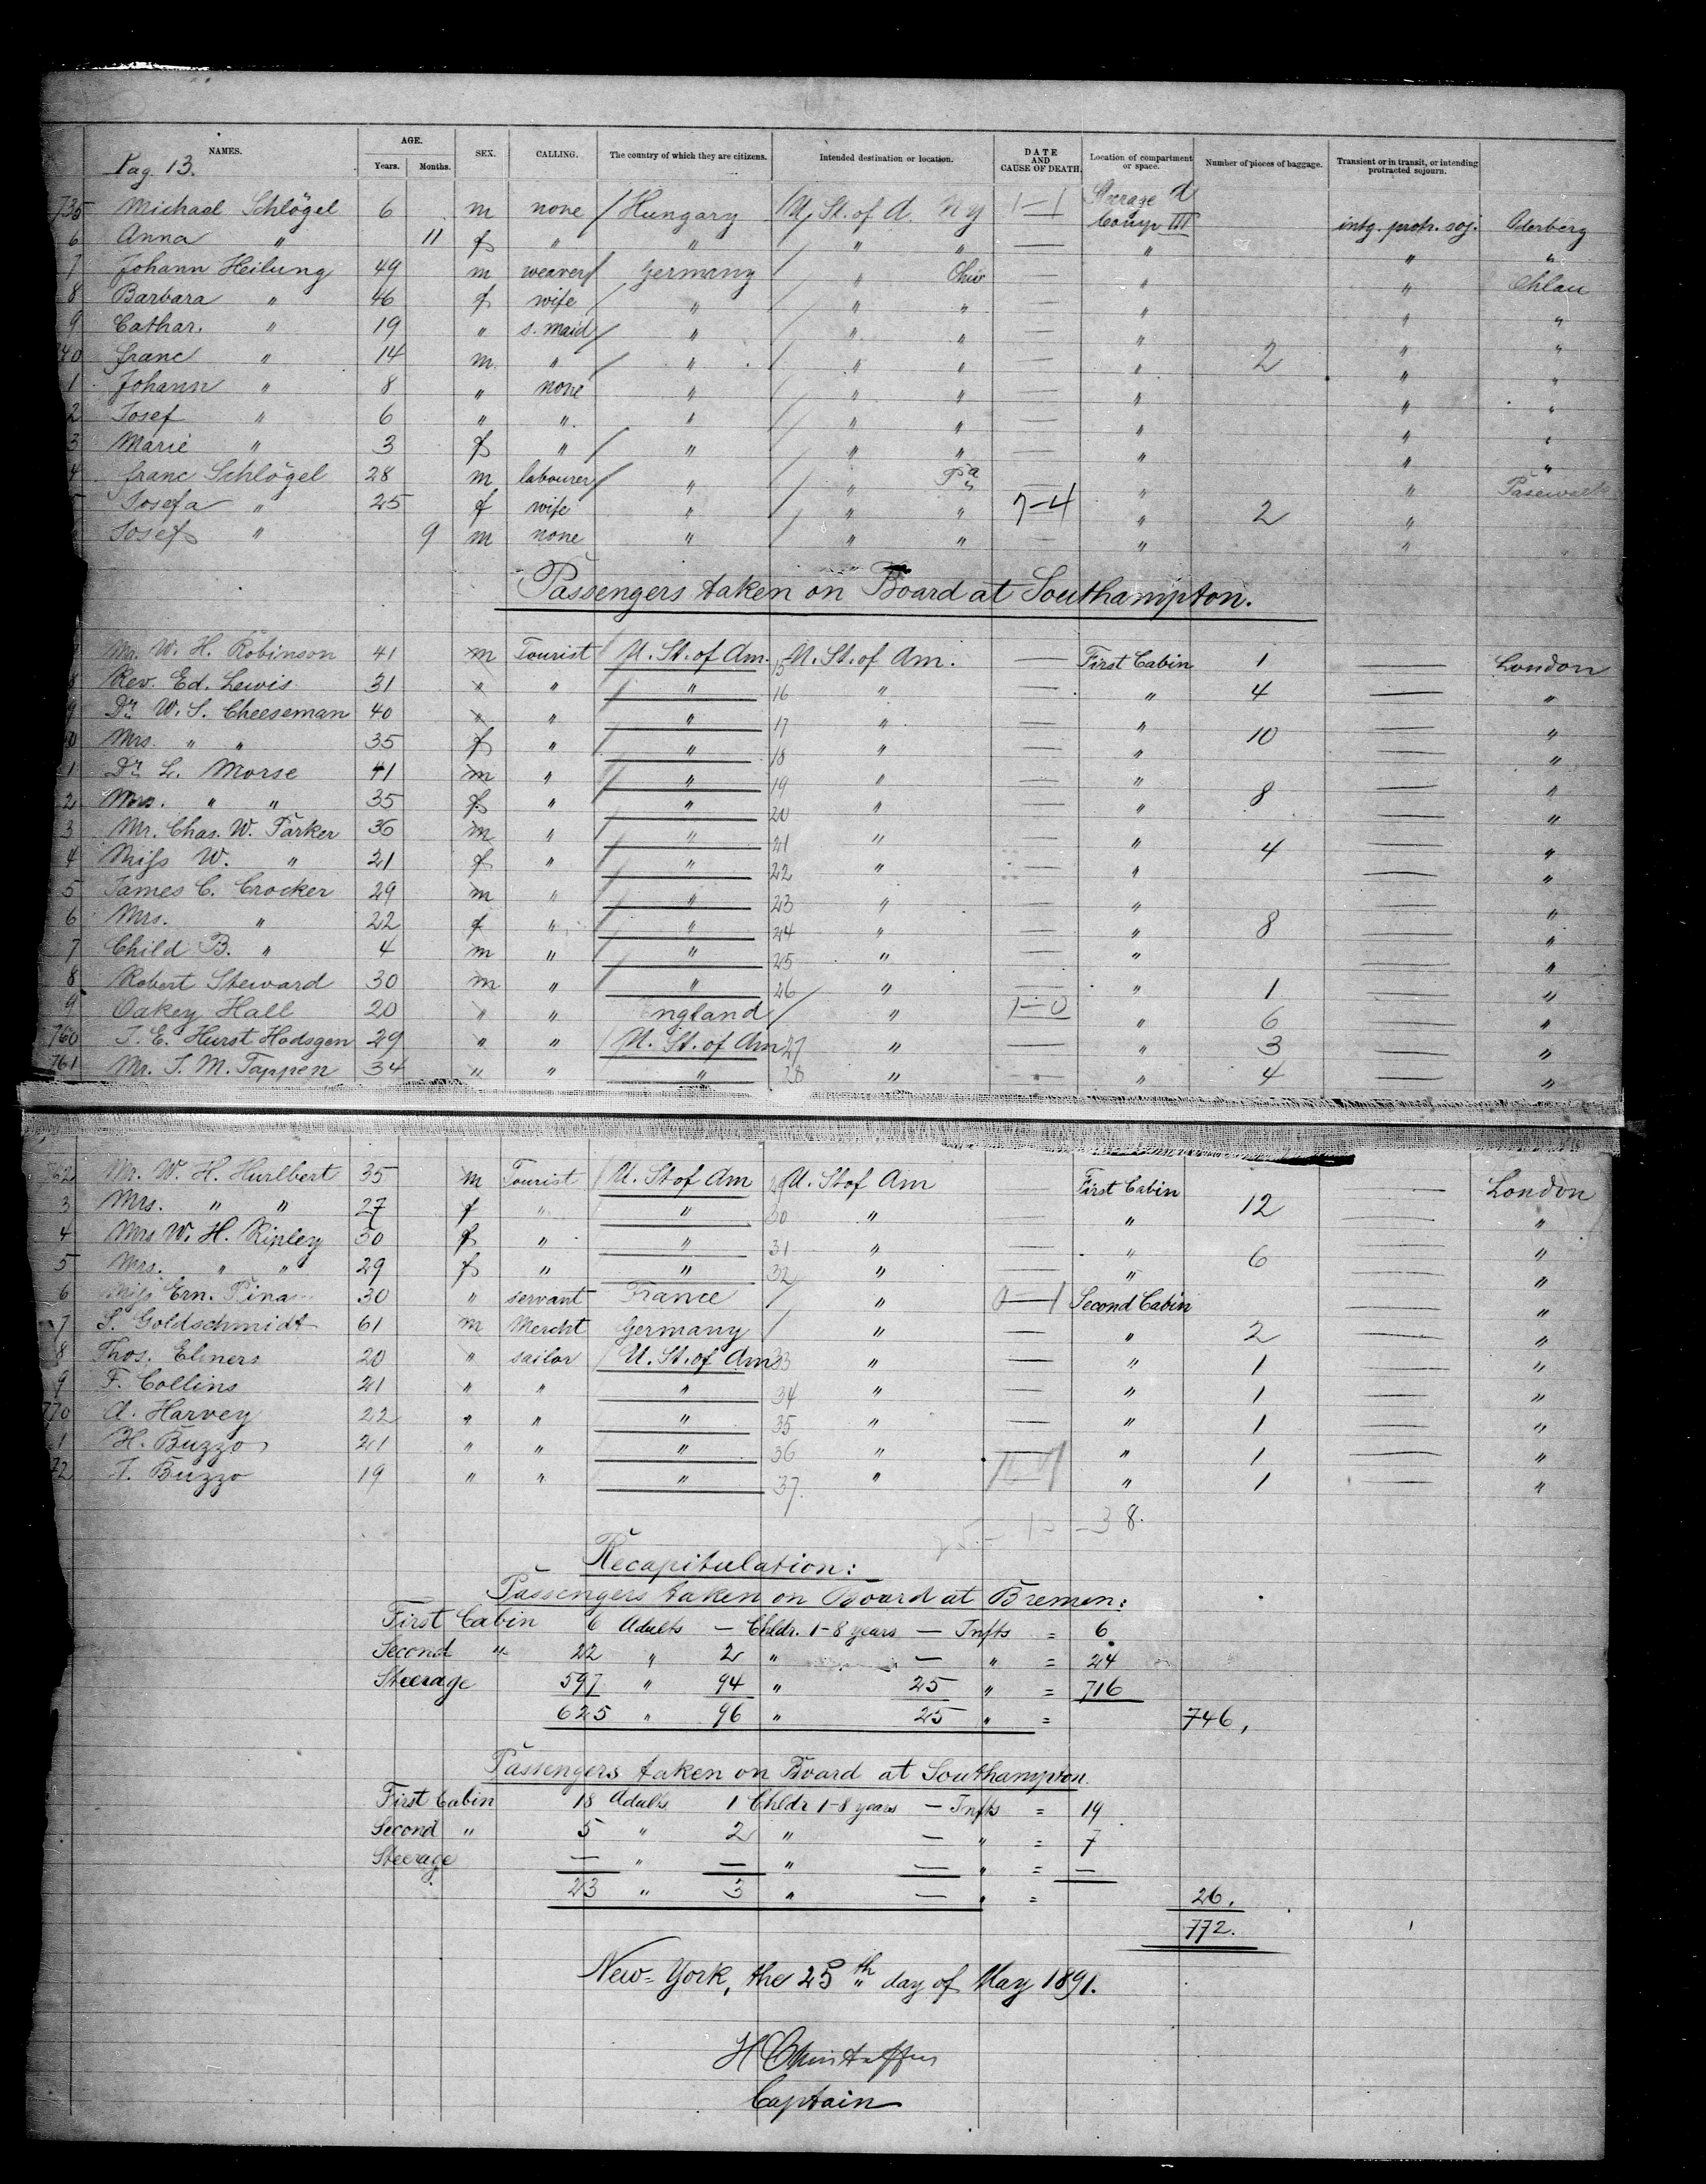 NAMES. AGE. Years. Months. SEX. CALLING. The country of which they are citizens. Intended destination or location. DATE AND CAUSE OF DEATH. Location of compartment or space. Number of pieces of baggage. Transient or in transit, or intending protracted sojourn.
Pag. 13.
735 Michael Schlögel 6 m none Hungary U. St. of A. NY 1-1 Steerage d Comp III intg. protr. soj. Oderberg
6 Anna " 11 f " " " " — " " "
7 Johann Heilung 49 m weaver Germany " Ohio — " " Ohlau
8 Barbara " 46 f wife " " " — " " "
9 Cathar. " 19 " s. maid " " " — " " "
740 Franc " 14 m. " " " " — " 2 " "
1 Johann " 8 " none " " " — " " "
2 Josef " 6 " " " " " — " " "
3 Marie " 3 f " " " " — " " "
4 Franc Schlögel 28 m labourer " " Pa " " Pasewalk
5 Josefa " 25 f wife " " " 7-4 " 2 "
Josef " 9 m none " " " — " "
Passengers taken on Board at Southampton.
Mr. W. H. Robinson 41 m Tourist U. St. of Am. 15 U. St. of Am. — First Cabin 1 — London
8 Rev. Ed. Lewis 31 " " " 16 " — " 4 — "
9 Dr. W. S. Cheeseman 40 " " " 17 " — " — "
0 Mrs. " " 35 f " " 18 " — " 10 — "
1 Dr. L. Morse 41 m " " 19 " — " — "
2 Mrs. " " 35 f " " 20 " — " 8 — "
3 Mr. Chas. W. Parker 36 m " " 21 " — " — "
4 Miss W. " 21 f " " 22 " — " 4 — "
5 James C. Crocker 29 m " " 23 " — " — "
6 Mrs. " 22 f " " 24 " — " 8 — "
7 Child B. " 4 m " " 25 " — " — "
8 Robert Steward 30 m " " 26 " — " 1 — "
9 Oakey Hall 20 " " England " 1-0 " 6 — "
760 J. E. Hurst Hodsgen 29 " " U. St. of Am 27 " — " 3 — "
761 Mr. J. M. Tappen 34 " " " 28 " — " 4 — "
62 Mr. W. H. Hurlbert 35 m Tourist U. St of Am 29 U. St of Am First Cabin — London
3 Mrs. " " 27 f " " 30 " — " 12 — "
4 Mrs W. H. Ripley 50 f " " 31 " — " — "
5 Mrs. " " 29 f " " 32 " — " 6 — "
6 Miss Ern. Pina 30 " servant France " 0-1 Second Cabin — "
7 S. Goldschmidt 61 m Mercht Germany " — " 2 — "
8 Thos. Elmers 20 " sailor U. St. of Am 33 " — " 1 — "
9 F. Collins 21 " " " 34 " — " 1 — "
770 A. Harvey 22 " " " 35 " — " 1 — "
1 H. Buzzo 21 " " " 36 " — " 1 — "
72 J. Buzzo 19 " " " 37. " " 1 — "
38.
Recapitulation:
Passengers taken on Board at Bremen:
First Cabin 6 Adults — Chldr. 1-8 years — Infts = 6
Second " 22 " 2 " — " = 24
Steerage 597 " 94 " 25 " = 716
625 " 96 " 25 " = 746,
Passengers taken on Board at Southampton.
First Cabin 18 Adults 1 Chldr 1-8 years — Infts = 19
Second " 5 " 2 " — " = 7
Steerage — " — " — " = —
23 " 3 " — " = 26.
772.
New-York, the 25th day of May 1891.
H Christoffers
Captain